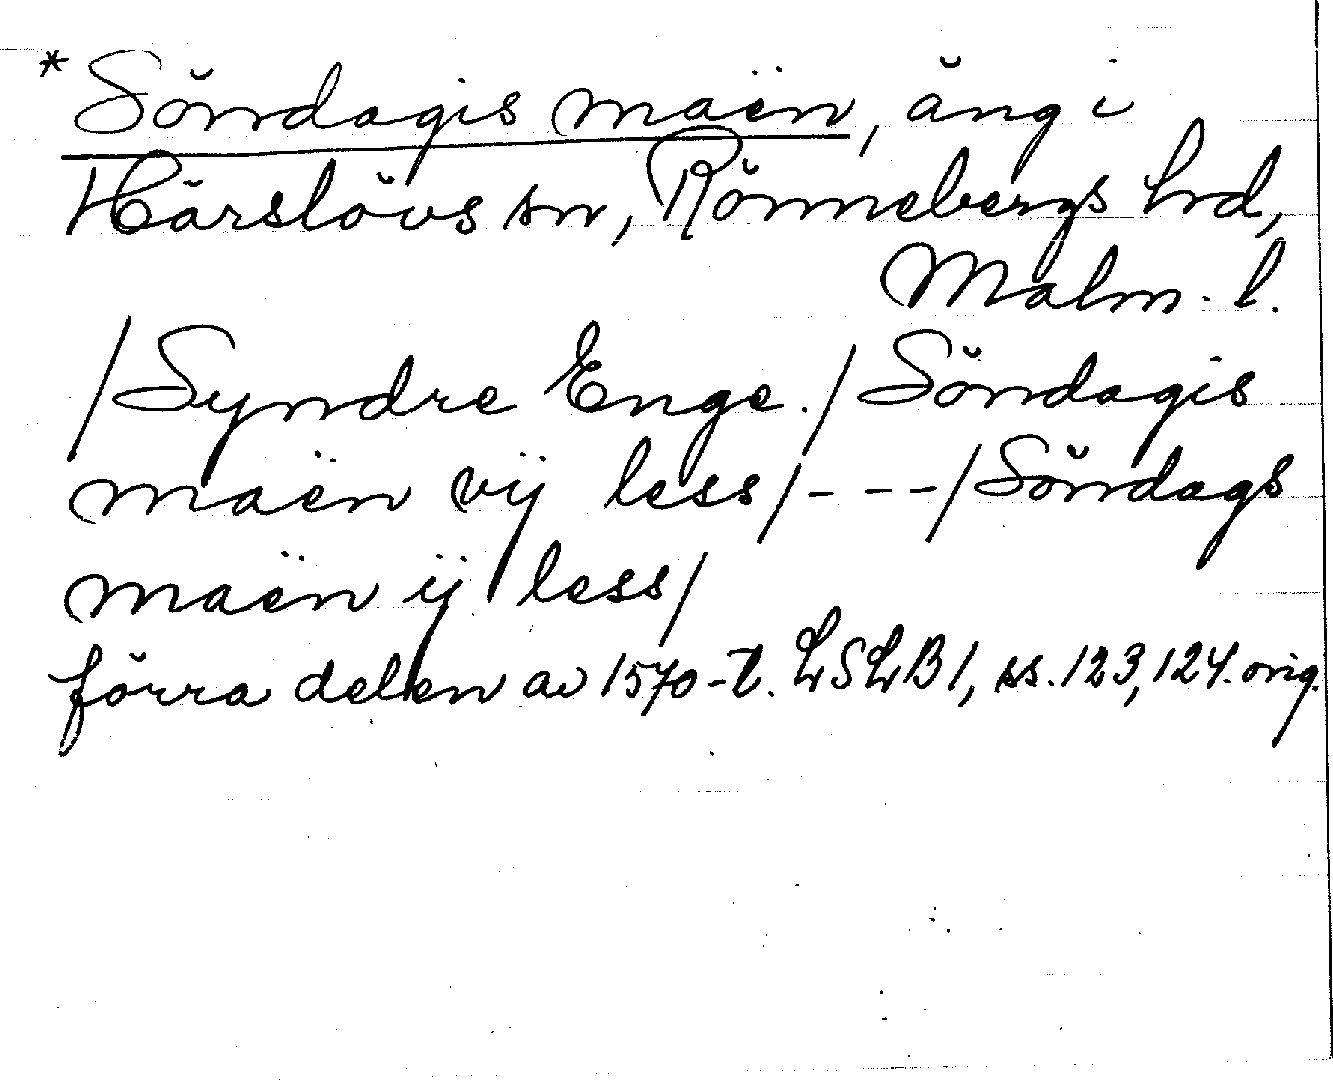 *Söndagis maën, äng i
Härslövs sn, Rönnebergs hrd,
Malm. l.
/Syndre Enge./Söndagis
maën vÿ less/---/Söndags
maën ÿ less/
förra delen av 1570-t. LSLB 1, ss. 123, 124. orig.